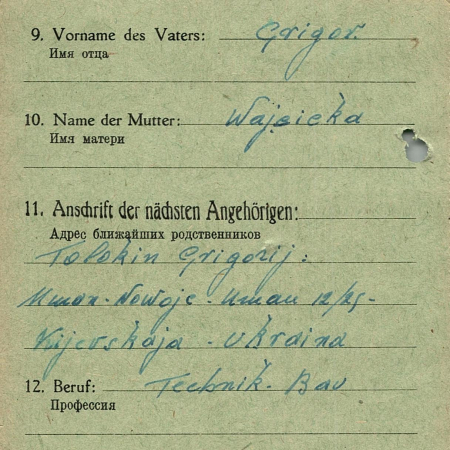 9. Vorname des Vaters: Grigor.
Имя отца
10. Name der Mutter: Wajcicka
Имя матери
11. Anschrift der nächsten Angehörigen:
Адрес ближайших родственников
Tolokin Grigorij:
Uman-Nowoje-Uman 12/25-
Kijevskaja - Ukraina
12. Beruf: Technik-Bau
Профессия